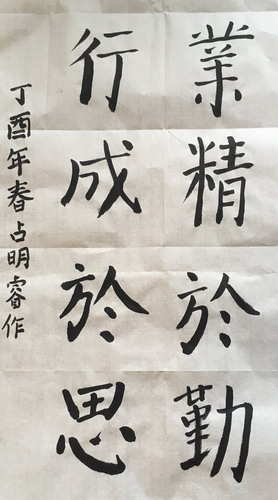 業精於勤
行成於思
丁酉年春占明睿作